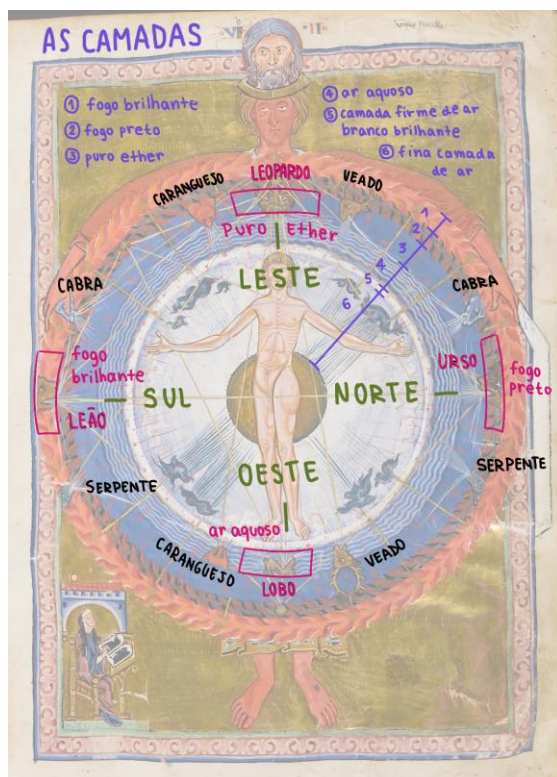 AS CAMADAS
① fogo brilhante
② fogo preto
③ puro ether
④ ar aquoso
⑤ camada firme de ar
branco brilhante
⑥ fina camada
de ar
CARANGUEJO
LEOPARDO
VEADO
1
2
3
4
5
6
Puro Ether
LESTE
CABRA
CABRA
fogo
brilhante
LEÃO
SUL
NORTE
URSO
fogo
preto
SERPENTE
SERPENTE
OESTE
ar aquoso
CARANGUEJO
LOBO
VEADO